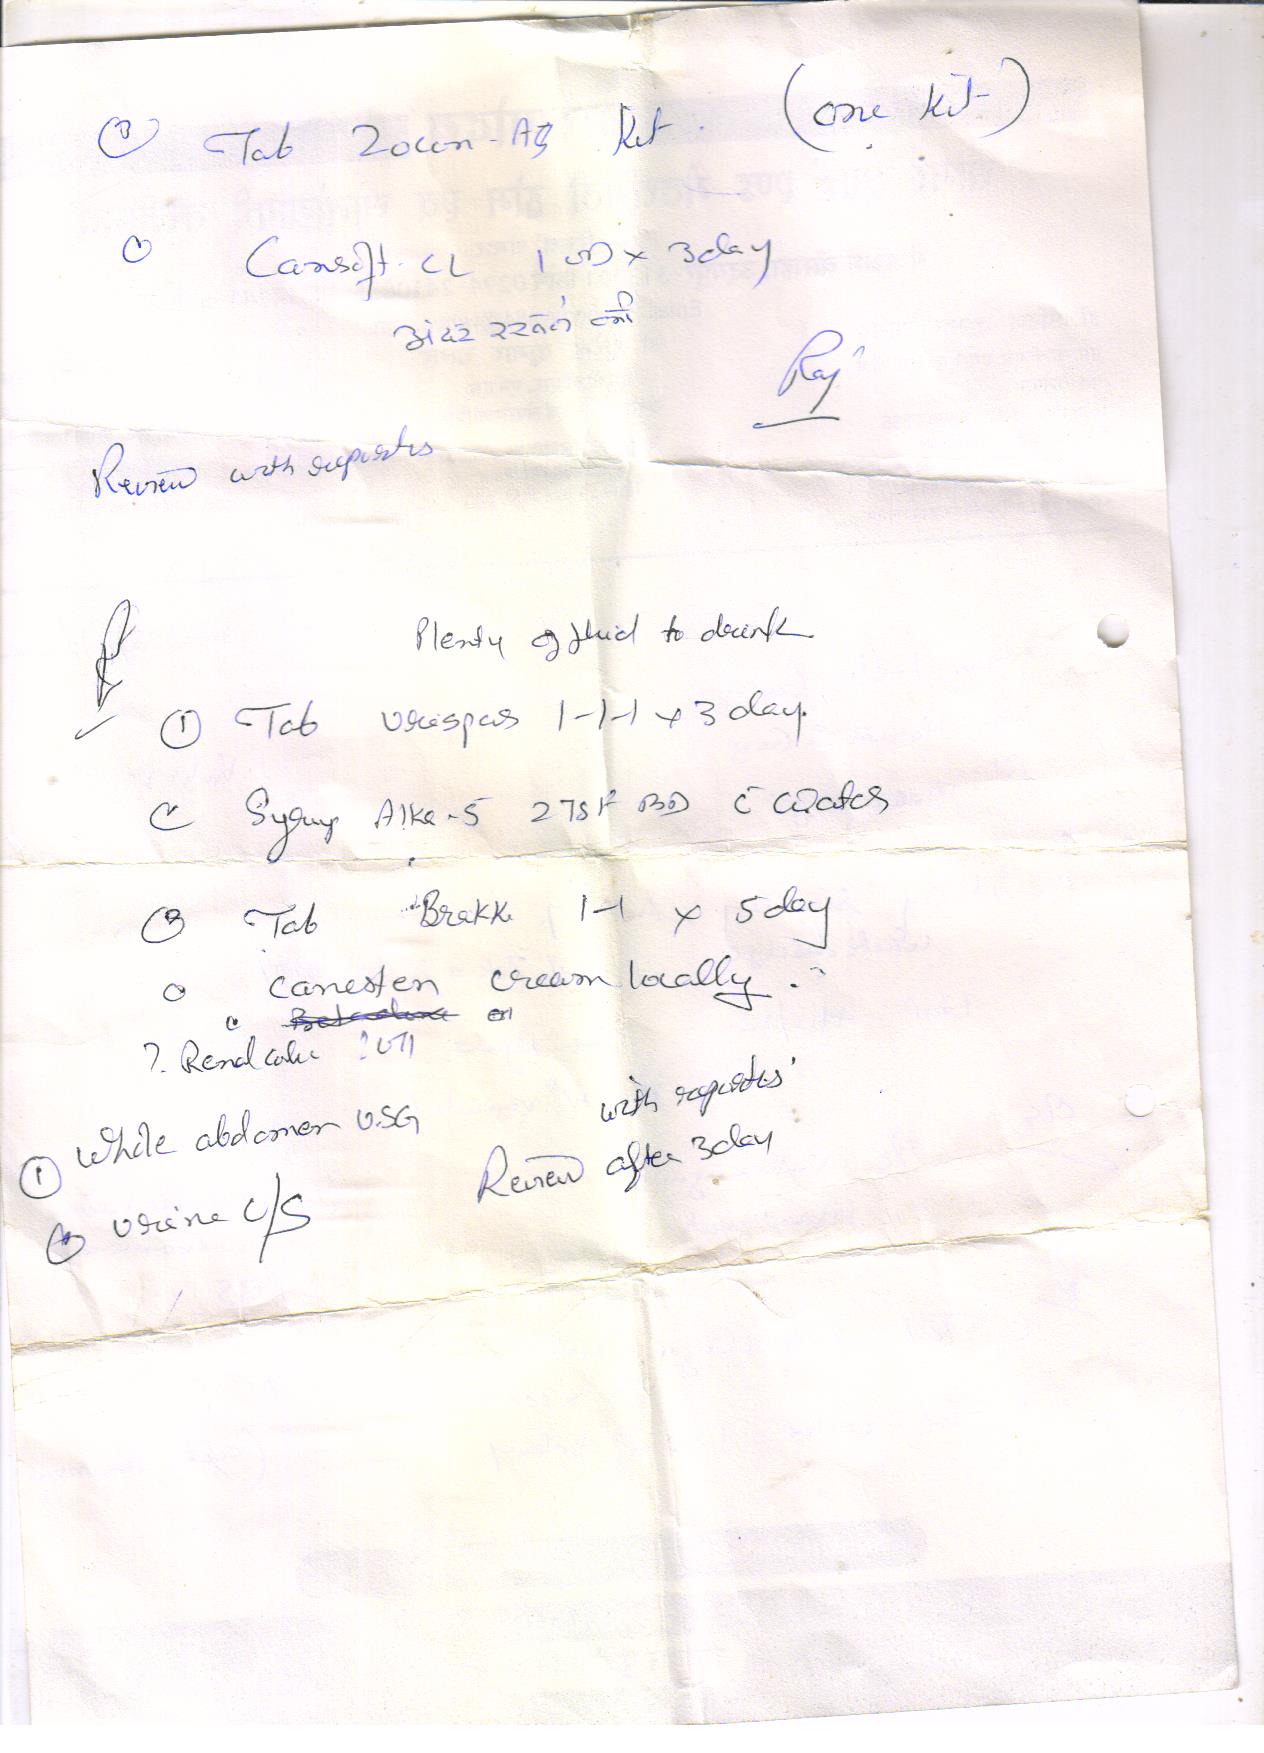 ③ Tab Zocon-AS Kit. (one kit)
Cansoft-CL 1 OD x 3day
अंदर रखने की
Raj
Review with reports
Plenty of fluid to drink
① Tab Urispas 1-1-1 x 3 day.
Syrup Alka-5 2TSF BD c̄ water
③ Tab Brakke 1-1 x 5day
canesten cream locally.
?. Renal colic ? UTI
① Whole abdomen USG
urine C/S
with reports
Review after 3day